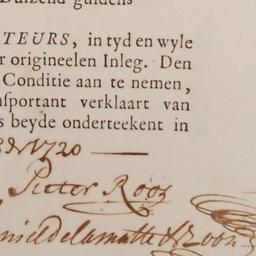 Duizend guldens
TEURS, in tyd en wyle
r origineelen Inleg. Den
Conditie aan te nemen,
nsportant verklaart van
s beyde onderteekent in
1720
Pieter Roos